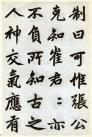 制曰可惟張公
克知崔君二㳟
不負所知古之
人神交氣應有